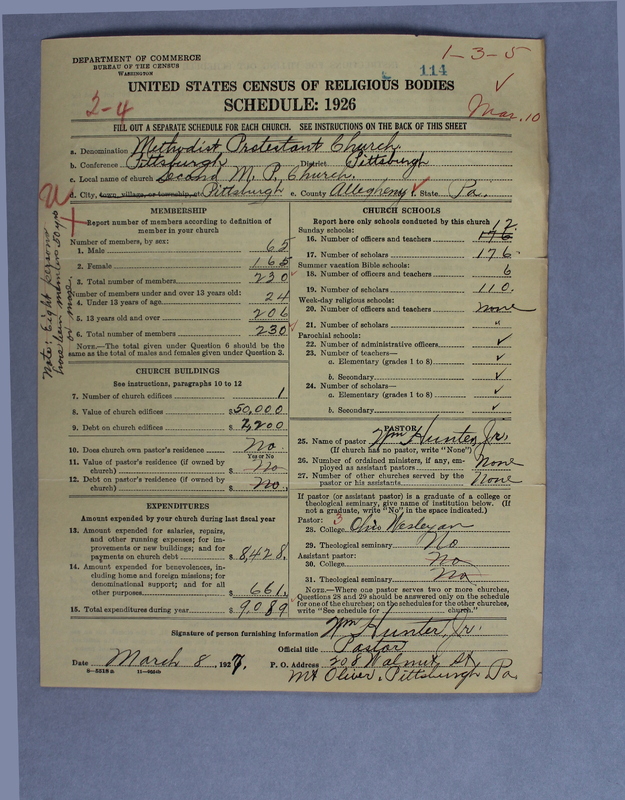 1-3-5
DEPARTMENT OF COMMERCE
BUREAU OF THE CENSUS
WASHINGTON
114
UNITED STATES CENSUS OF RELIGIOUS BODIES
SCHEDULE: 1926
2-4
Mar. 10
FILL OUT A SEPARATE SCHEDULE FOR EACH CHURCH. SEE INSTRUCTIONS ON THE BACK OF THIS SHEET
a. Denomination Methodist Protestant Church.
b. Conference Pittsburgh District Pittsburgh
c. Local name of church Second M. P. Church.
d. City, town, village, or township, etc Pittsburgh e. County Allegheny f. State Pa.
Note: Eight persons
have been members 50 yrs
or more.
MEMBERSHIP
Report number of members according to definition of
member in your church
Number of members, by sex:
1. Male 65
2. Female 165
3. Total number of members 230
Number of members under and over 13 years old:
4. Under 13 years of age 24
5. 13 years old and over 206
6. Total number of members 230
NOTE.—The total given under Question 6 should be the
same as the total of males and females given under Question 3.
CHURCH BUILDINGS
See instructions, paragraphs 10 to 12
7. Number of church edifices 1
8. Value of church edifices $50,000
9. Debt on church edifices $2,200
10. Does church own pastor's residence No.
Yes or No
11. Value of pastor's residence (if owned by
church) $ No
12. Debt on pastor's residence (if owned by
church) $ No.
EXPENDITURES
Amount expended by your church during last fiscal year
13. Amount expended for salaries, repairs,
and other running expenses; for im-
provements or new buildings; and for
payments on church debt $8,428.
14. Amount expended for benevolences, in-
cluding home and foreign missions; for
denominational support; and for all
other purposes $ 661.
15. Total expenditures during year $ 9,089
CHURCH SCHOOLS
Report here only schools conducted by this church
Sunday schools: 12
16. Number of officers and teachers 176
17. Number of scholars 176
Summer vacation Bible schools:
18. Number of officers and teachers 6
19. Number of scholars 110.
Week-day religious schools:
20. Number of officers and teachers none
21. Number of scholars "
Parochial schools:
22. Number of administrative officers ✓
23. Number of teachers—
a. Elementary (grades 1 to 8) ✓
b. Secondary ✓
24. Number of scholars—
a. Elementary (grades 1 to 8) ✓
b. Secondary ✓
PASTOR
25. Name of pastor Wm Hunter, Jr.
(If church has no pastor, write "None")
26. Number of ordained ministers, if any, em-
ployed as assistant pastors None
27. Number of other churches served by the
pastor or his assistants None
If pastor (or assistant pastor) is a graduate of a college or
theological seminary, give name of institution below. (If
not a graduate, write "No" in the space indicated.)
Pastor: 3
28. College Ohio Wesleyan
29. Theological seminary No
Assistant pastor:
30. College No
31. Theological seminary No
NOTE.—Where one pastor serves two or more churches,
Questions 28 and 29 should be answered only on the schedule
for one of the churches; on the schedules for the other churches,
write "See schedule for church."
Signature of person furnishing information Wm Hunter, Jr.
Official title Pastor
Date March 8, 1927. P. O. Address 208 Walnut St,
Mt Oliver, Pittsburgh Pa.